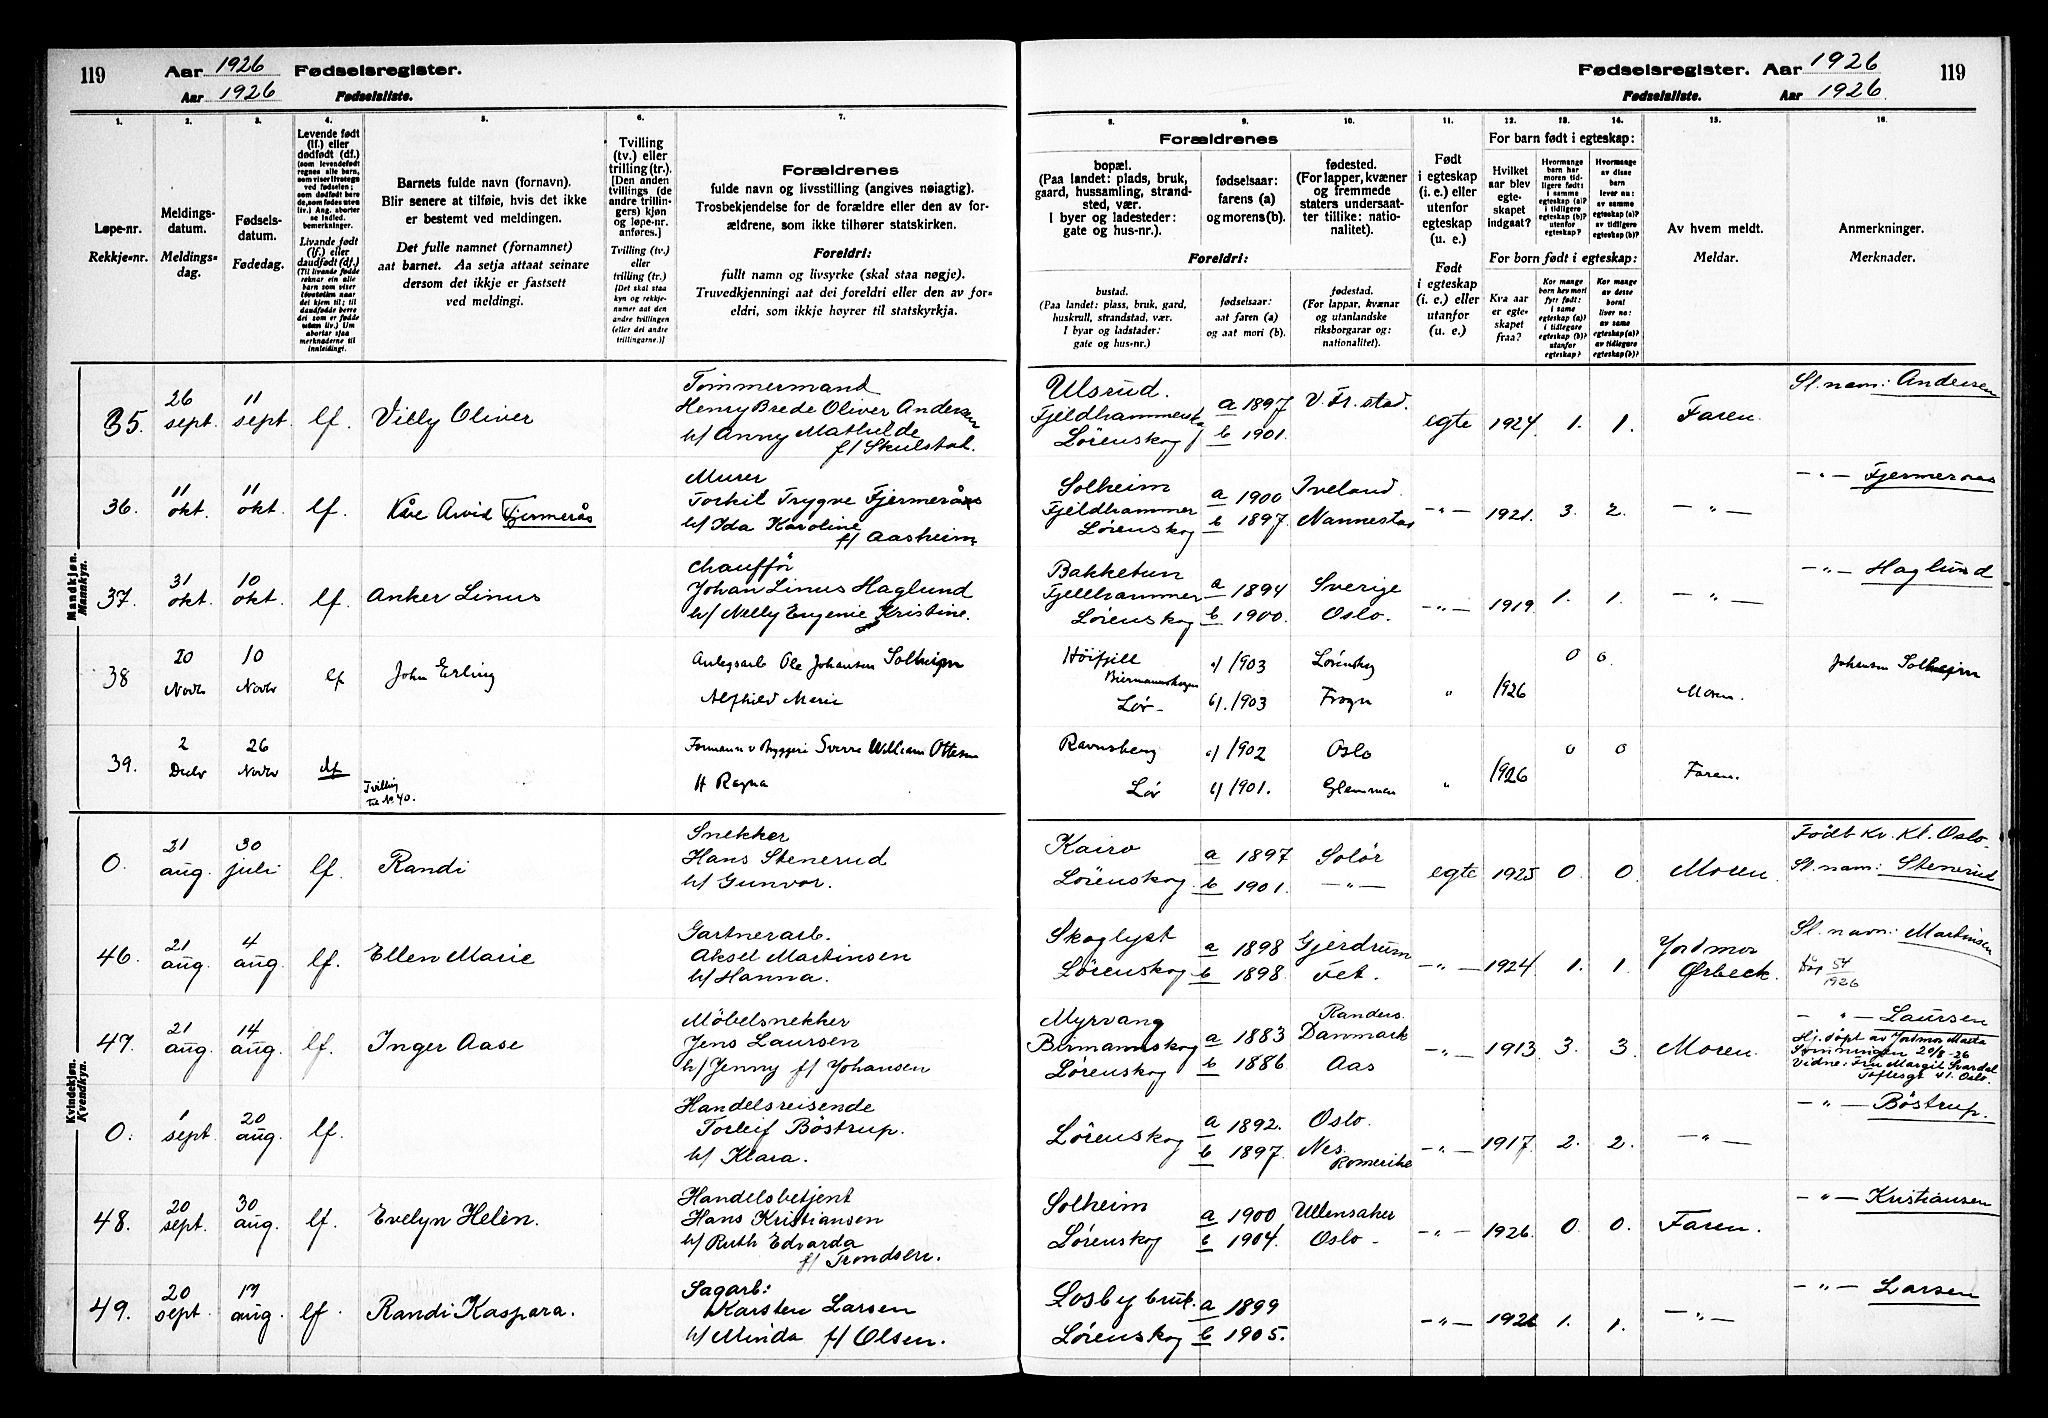 119
Aar 1926 Fødselsregister.
Aar 1926 Fødselsliste.
Fødselsregister. Aar 1926
Fødselsliste. Aar 1926.
119
1.
2.
3.
4.
5.
6.
7.
8.
9.
10.
11.
12.
13.
14.
15.
16.
Løpe-nr.
Rekkje-nr.
Meldings-
datum.
Meldings-
dag.
Fødsels-
datum.
Fødedag.
Levende født
(lf.) eller
dødfødt (df.)
Livande født
(lf.) eller
daudfødt (df.)
Barnets fulde navn (fornavn).
Blir senere at tilføie, hvis det ikke
er bestemt ved meldingen.
Det fulle namnet (fornamnet)
aat barnet. Aa setja attaat seinare
dersom det ikkje er fastsett
ved meldingi.
Tvilling
(tv.) eller
trilling (tr.).
[Den anden
tvillings (de
andre trillin-
gers) kjøn
og løpe-nr.
anføres.]
Tvilling (tv.)
eller
trilling (tr.)
[Det skal staa
kyn og rekkje-
numer aat den
andre tvillingen
(eller dei andre
trillingarne.)]
Forældrenes
fulde navn og livsstilling (angives nøiagtig).
Trosbekjendelse for de forældre eller den av for-
ældrene, som ikke tilhører statskirken.
Foreldri:
fullt namn og livsyrke (skal staa nøgje).
Truvedkjenningi aat dei foreldri eller den av for-
eldri, som ikkje høyrer til statskyrkja.
Forældrenes
bopæl.
(Paa landet: plads, bruk,
gaard, hussamling, strand-
sted, vær.
I byer og ladesteder:
gate og hus-nr.).
fødselsaar:
farens (a)
og morens(b).
fødested.
(For lapper, kvæner
og fremmede
staters undersaat-
ter tillike: natio-
nalitet).
Foreldri:
bustad.
(Paa landet: plass, bruk, gard,
huskrull, strandstad, vær.
I byar og ladstader:
gate og hus-nr.)
fødselsaar:
aat faren (a)
og aat mori (b).
fødestad.
(For lappar, kvænar
og utanlandske
riksborgarar og:
nationalitet).
Født
i egteskap
(i. e.) eller
utenfor
egteskap
(u. e.)
Født
i egteskap
(i. e.) eller
utanfor
(u. e.)
For barn født i egteskap:
Hvilket
aar blev
egte-
skapet
indgaat?
Hvormange
barn har
moren tid-
ligere født:
i samme
egteskap (a)?
i tidligere
egteskap (b)?
utenfor
egteskap?
Hvormange
av disse
barn
lever nu:
av samme
egteskap (a)?
av tidligere
egteskap (b)?
For born født i egteskap:
Kva aar
er egte-
skapet
fraa?
Kor mange
born hev mori
fyrr født:
i same
egteskap (a)?
i tidlegare
egteskap (b)?
utanfor
egteskap?
Kor mange
av desse
borni
liver no:
av same
egteskap (a)?
av tidlegare
egteskap (b)?
Av hvem meldt.
Meldar.
Anmerkninger.
Merknader.
Mandkjøn.
Mannkyn.
35. 26 sept. 11 sept. lf. Villy Oliver
Tømmermand
Henry Brede Oliver Andersen
h/ Anny Mathilde
f/ Skulstad.
Ulsrud.
Fjeldhammer
Lørenskog
a 1897
b 1901.
V. Fr. stad.
egte 1924. 1. 1. Faren.
Sl. nam: Andersen
36. 11 okt. 11 okt. lf. Kåre Arvid Fjermerås
Murer
Torkil Trygve Fjermerås
h/ Ida Karoline
f/ Aasheim
Solheim
Fjeldhammer
Lørenskog
a 1900
b 1897.
Iveland.
Nannestad
-"- 1921. 3. 2. -"-
-"- Fjermeraas
37. 31 okt. 10 okt. lf. Anker Linus
Chauffør
Johan Linus Haglund
h/ Nelly Eugenie Kristine.
Bakketun
Fjeldhammer
Lørenskog
a 1894
b 1900.
Sverige
Oslo.
-"- 1919. 1. 1. -"-
-"- Haglund
38 20 Novbr 10 Novbr lf John Erling
Anlegsarb Ole Johansen Solheim
Alfhild Marie
Høifjell
Lør-
a/ 1903
b/. 1903
Lørenskog
Frogn
" 1926 0 0. Moren.
Johansen Solheim
39. 2 Decbr 26 Novbr df
Tvilling
til No 40.
Formann v Byggeri Sverre William Ottesen
H Ragna
Ravnsberg
Lør
a/ 1902
b/ 1901.
Oslo
Glemmen
" 1926 0 0 Faren.
Kvindekjøn.
Kvendkyn.
0. 21 aug. 30 juli lf. Randi
Snekker
Hans Stenerud
h/ Gunvor.
Kairo
Lørenskog.
a 1897
b 1901.
Solør
-"-
egte 1925 0. 0. Moren.
Født Kv. Kl. Oslo.
Sl. nam: Stenerud
46. 21 aug. 4 aug. lf. Ellen Marie
Gartnerarb.
Aksel Martinsen
h/ Hanna.
Skoglyst
Lørenskog
a 1898
b 1898.
Gjerdrum
Fet.
-"- 1924. 1. 1. Jordmor
Ørbeck.
Sl. navn: Martinsen
54
1926
47. 21 aug. 14 aug. lf. Inger Aase
Møbelsnekker
Jens Laursen
h/ Jenny f/ Johansen
Myrvang
Birmannskog
Lørenskog
a 1883
b 1886
Randers.
Danmark
Aas
-"- 1913. 3. 3. Moren.
- " - Laursen
Hj. døpt av Jordmor Marta
20/8-26
Vidne: Fru Margit Svardal
Toftesgt 41. Oslo.
0. 1 sept. 20 aug. lf.
Handelsreisende
Torleif Bøstrup.
h/ Klara.
Lørenskog
a 1892.
b 1897.
Oslo.
Nes.
Romerike
-"- 1917. 2. 2. -"-
-"- Bøstrup.
48. 20 sept. 30 aug. lf. Evelyn Helèn.
Handelsbetjent
Hans Kristiansen
h/ Ruth Edvarda
f/ Trondsen.
Solheim
Lørenskog
a 1900
b 1904.
Ullensaker
Oslo-
-"- 1926. 0. 0. Faren.
-"- Kristiansen
49. 20 sept. 17 aug. lf. Randi Kaspara.
Sagarb:
Karsten Larsen
h/ Minda f/ Olsen.
Losby bruk.
Lørenskog
a 1899
b 1905.
-"- 1926 1. 1. -"-
-"- Larsen